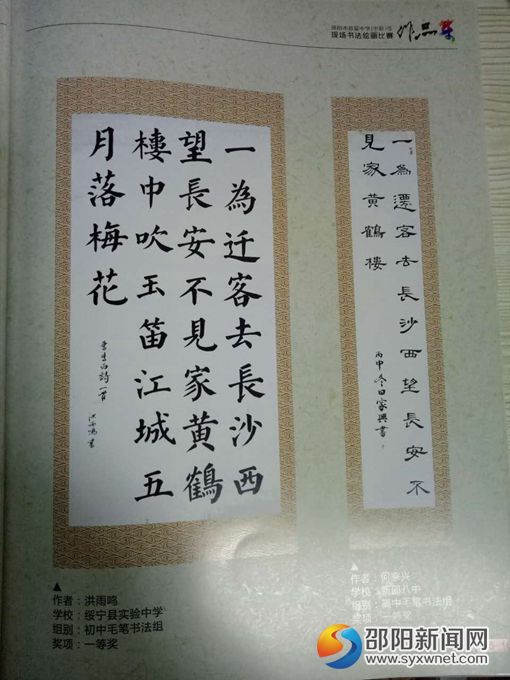 现场书法绘画比赛
作品集
一為迁客去長沙西
望長安不見家黄鶴
樓中吹玉笛江城五
月落梅花
洪雨鸣書
一為遷客去長沙西望長安不
見家黄鶴樓
丙申冬日家興書
作者：洪雨鸣
学校：绥宁县实验中学
组别：初中毛笔书法组
奖项：一等奖
作者：何家兴
组别：高中毛笔书法组
奖项：一等奖
邵阳新闻网
www.syxwnet.com